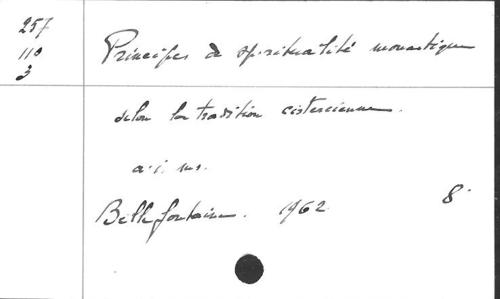 257
110
3
Principes de spiritualité monastique
selon la tradition cistercienne.
Bellefontaine. 1962 8°